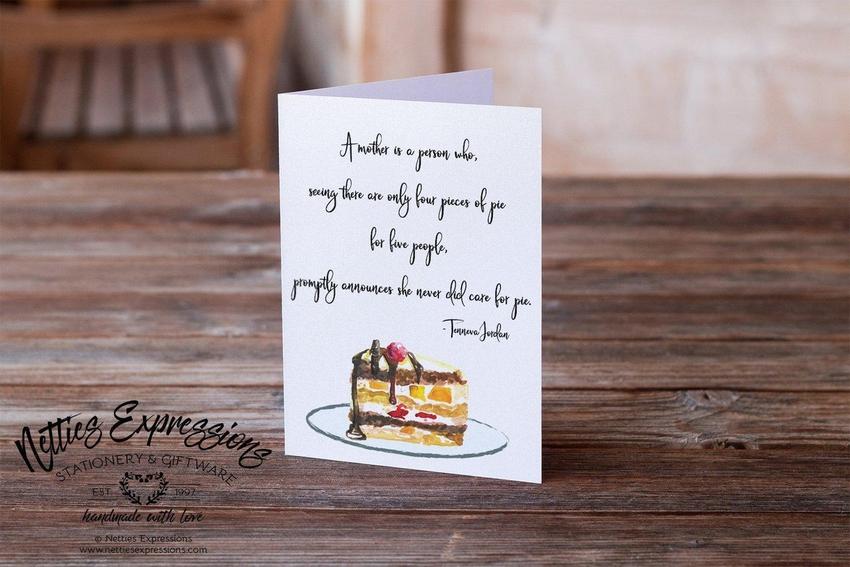 A mother is a person who,
seeing there are only four pieces of pie
for five people,
promptly announces she never did care for pie.
- Tenneva Jordan
Netties Expressions
STATIONERY & GIFTWARE
EST 1997
handmade with love
© Netties Expressions
www.nettiesexpressions.com